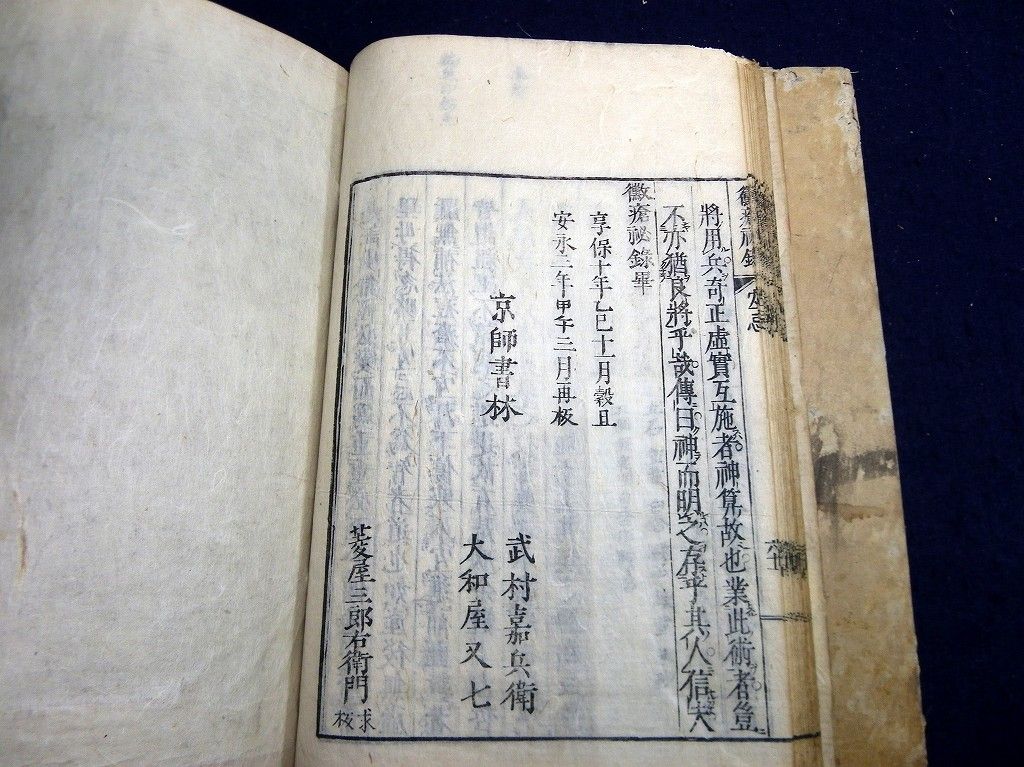 黴瘡祕錄
將用兵奇正虛實互施者神算故也業此術者豈
不亦猶良將乎哉傳曰神而明之存乎其人信夫
黴瘡祕錄畢
享保十年乙巳十一月穀旦
安永三年甲午三月再板
京師書林
武村嘉兵衛
大和屋又七
菱屋三郎右衛門
求板